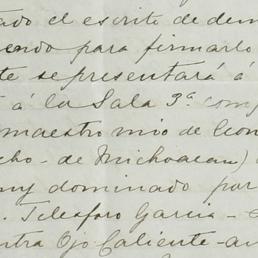 tado el escrito de dem
endo para firmarlo
te se presentará á
á la Sala 3ª comp
maestro mio de
cho - de Michoacan)
uy dominado por
Telesforo Garcia -
ntra Ojo Caliente - au